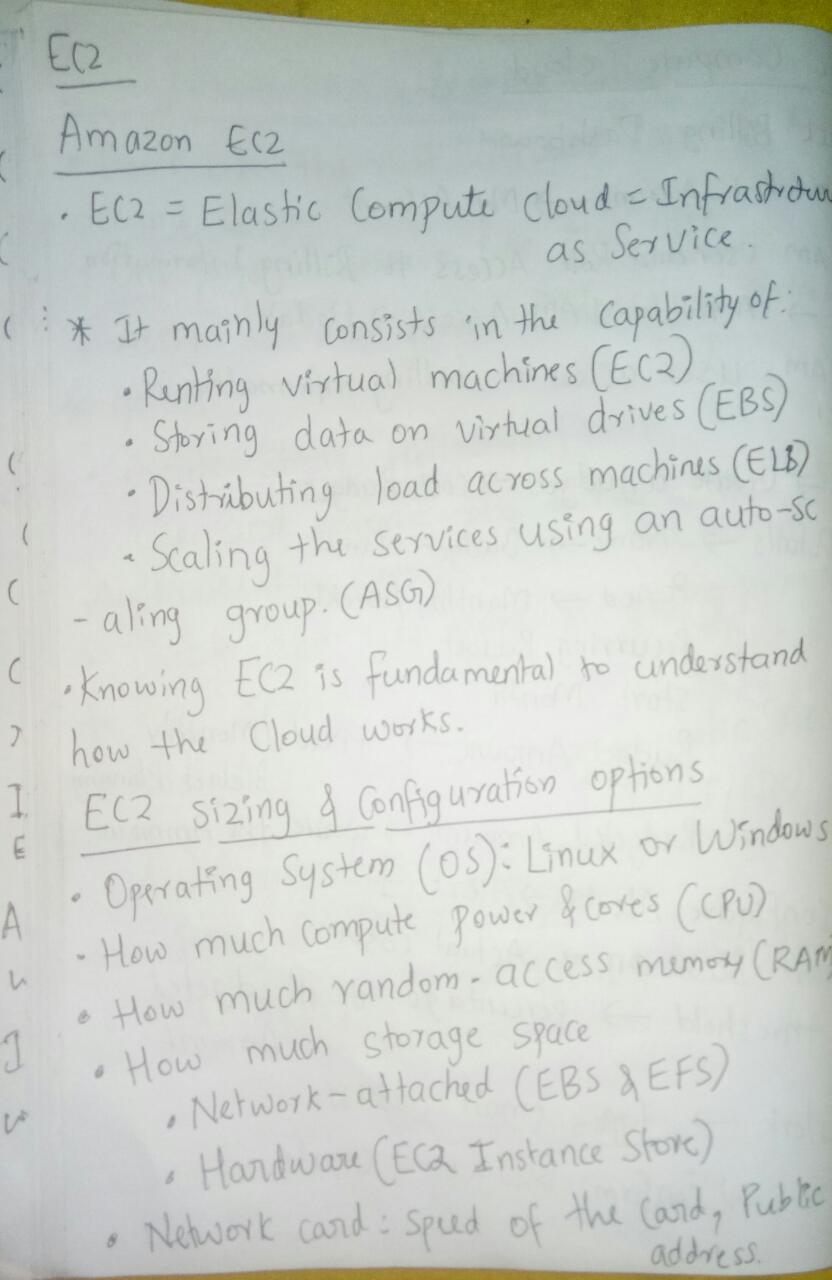 EC2
Amazon EC2
• EC2 = Elastic Compute Cloud = Infrastructu
as Service.
* It mainly consists in the capability of:
• Renting virtual machines (EC2)
• Storing data on virtual drives (EBS)
• Distributing load across machines (ELB)
• Scaling the services using an auto-sc
- aling group. (ASG)
• Knowing EC2 is fundamental to understand
how the Cloud works.
EC2 sizing & Configuration options
• Operating System (OS): Linux or Windows
• How much compute power & cores (CPU)
• How much random-access memory (RAM
• How much storage space
• Network-attached (EBS & EFS)
• Hardware (EC2 Instance Store)
• Network card: speed of the card, Public
address.